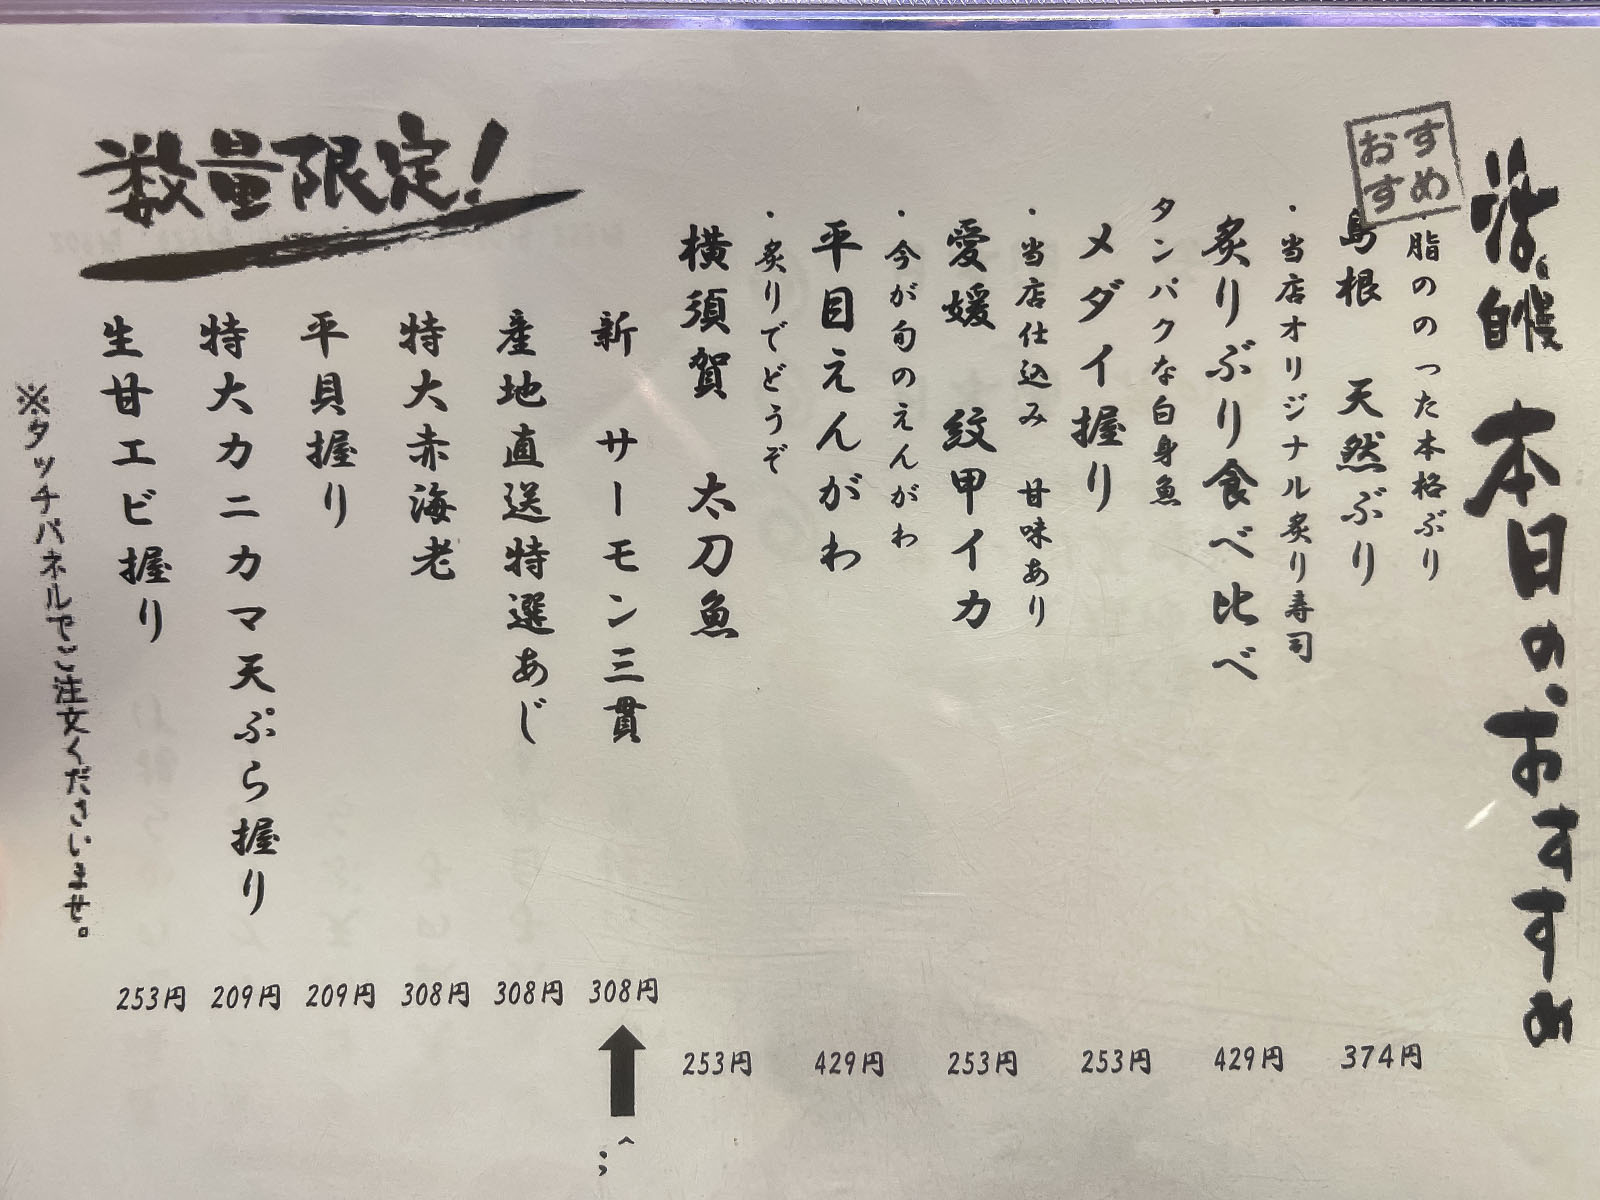 活自慢 本日の、おすすめ
おすすめ
・脂ののった本格ぶり
島根 天然ぶり 374円
・当店オリジナル炙り寿司
炙りぶり食べ比べ 429円
タンパクな白身魚
メダイ握り 253円
・当店仕込み 甘味あり
愛媛 紋甲イカ 253円
・今が旬のえんがわ
平目えんがわ 429円
・炙りでどうぞ
横須賀 太刀魚 253円
数量限定!
新 サーモン三貫 308円
産地直送特選あじ 308円
特大赤海老 308円
平貝握り 209円
特大カニカマ天ぷら握り 209円
生甘エビ握り 253円
※タッチパネルでご注文くださいませ。